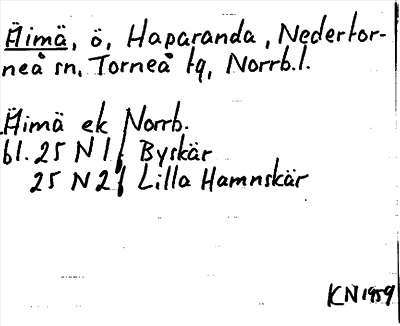 Äimä, ö, Haparanda, Nedertor-
neå sn, Torneå tg, Norrb.l.
Äimä ek Norrb.
bl. 25 N 1 f Byskär
25 N 2 f Lilla Hamnskär
KN 1959